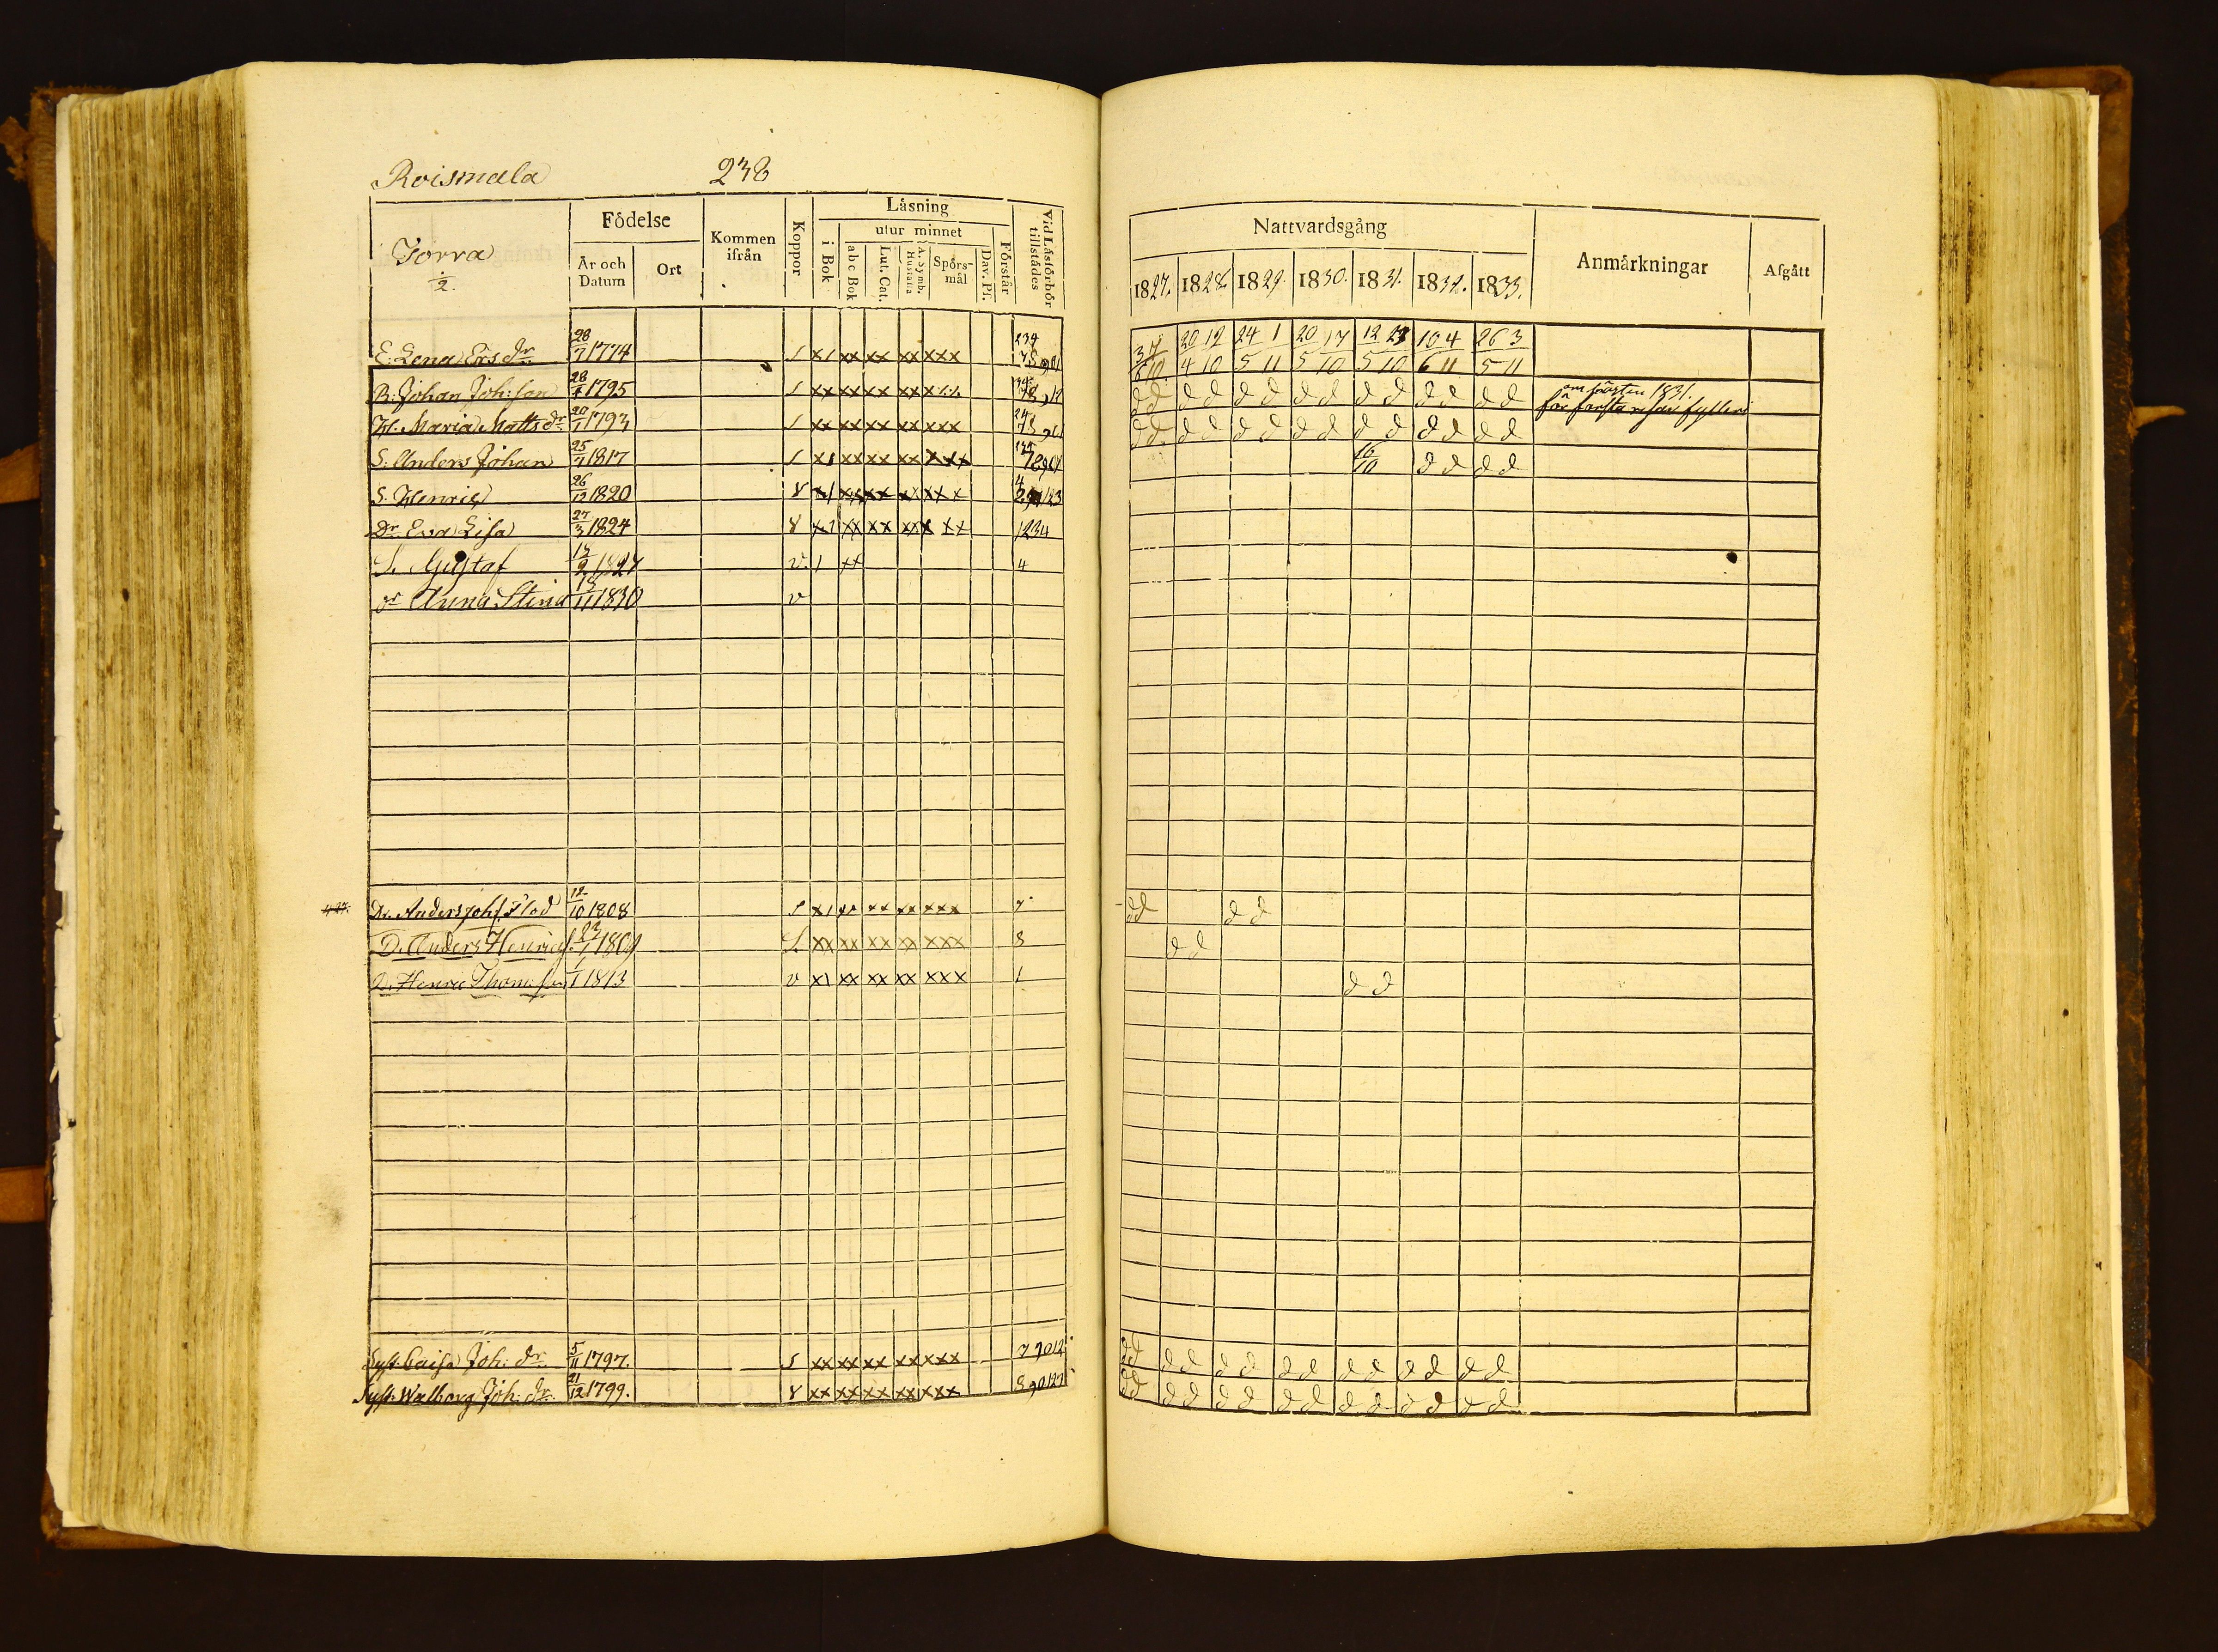 Roismala 238
Torra
1/2.
Födelse
År och Datum
Ort
Kommen ifrån
Koppor
Läsning
i Bok
utur minnet
abc Bok
Lut. Cat.
A. Symb. Hustafla
Spörsmål
Dav. Ps.
Förstår
Vid Läsförhör tillstädes
Nattvardsgång
1827. 1828. 1829. 1830. 1831. 1832. 1833.
Anmärkningar
Afgått
E. Lena Ersdr 28/7 1774 s x1 xx xx xx xxx 3/6 7/10 20/4 12/10 24/5 1/11 20/5 17/10 12/5 10 10/6 4/11 26/5 3/11
B: Johan Joh:son 1795 s xx xx xx xx dd dd dd dd dd dd dd om hösten 1831.
för första resan fylleri
H. Maria Mattsdr 20/1 1793 s xx xx xx xx xxx dd dd dd dd dd dd dd
S: Anders Johan 25/7 1817 s x1 xx xx xx xxx 16/10 dd dd
S. Henric 26/12 1820 v x1 xx xx xx xxx
Dr Eva Lisa 27/3 1824 v x1 xx xx xx xx 1234
S. Gustaf 1827 v. 1 xx 4
dr Anna Stina 1830 v
D. Anders Johs. Flod 12/10 1808 s x1 xx xx xx xxx 7 dd dd
D. Anders Henrics. 23/1 1809 s xx xx xx xx xxx 8 dd
D. Henric Thom.son 1/1 1813 v x1 xx xx xx xxx 1 dd
Syst. Caisa Joh: dr 5/11 1797. s xx xx xx xx xxx dd dd dd dd dd dd dd
Syst. Walborg Joh: dr 21/12 1799. v xx xx xx xx xxx dd dd dd dd dd dd dd